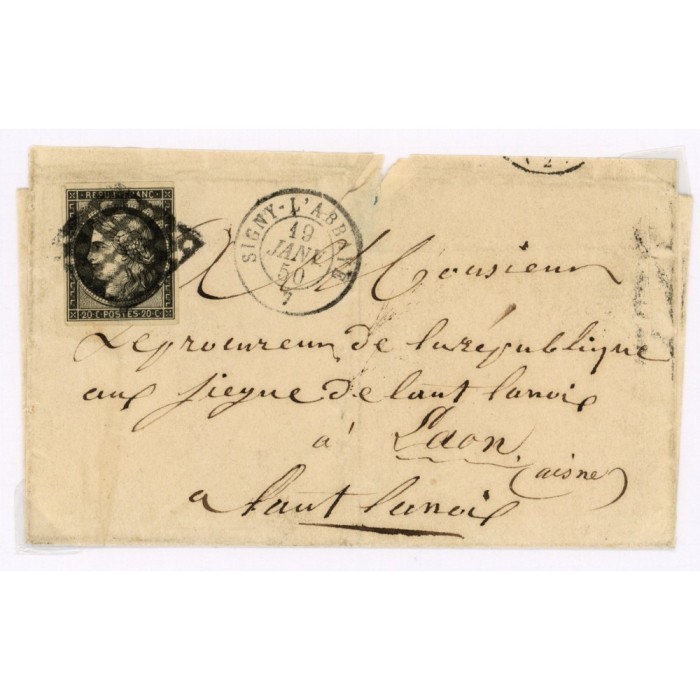 REPUB. FRANC.
20 C POSTES 20 C
SIGNY-L'ABBAYE
19
JANV
50
7
2
A Monsieur
Le procureur de la république
aux siegne de laut lanoix
à Laon
(aisne)
a laut lanoix